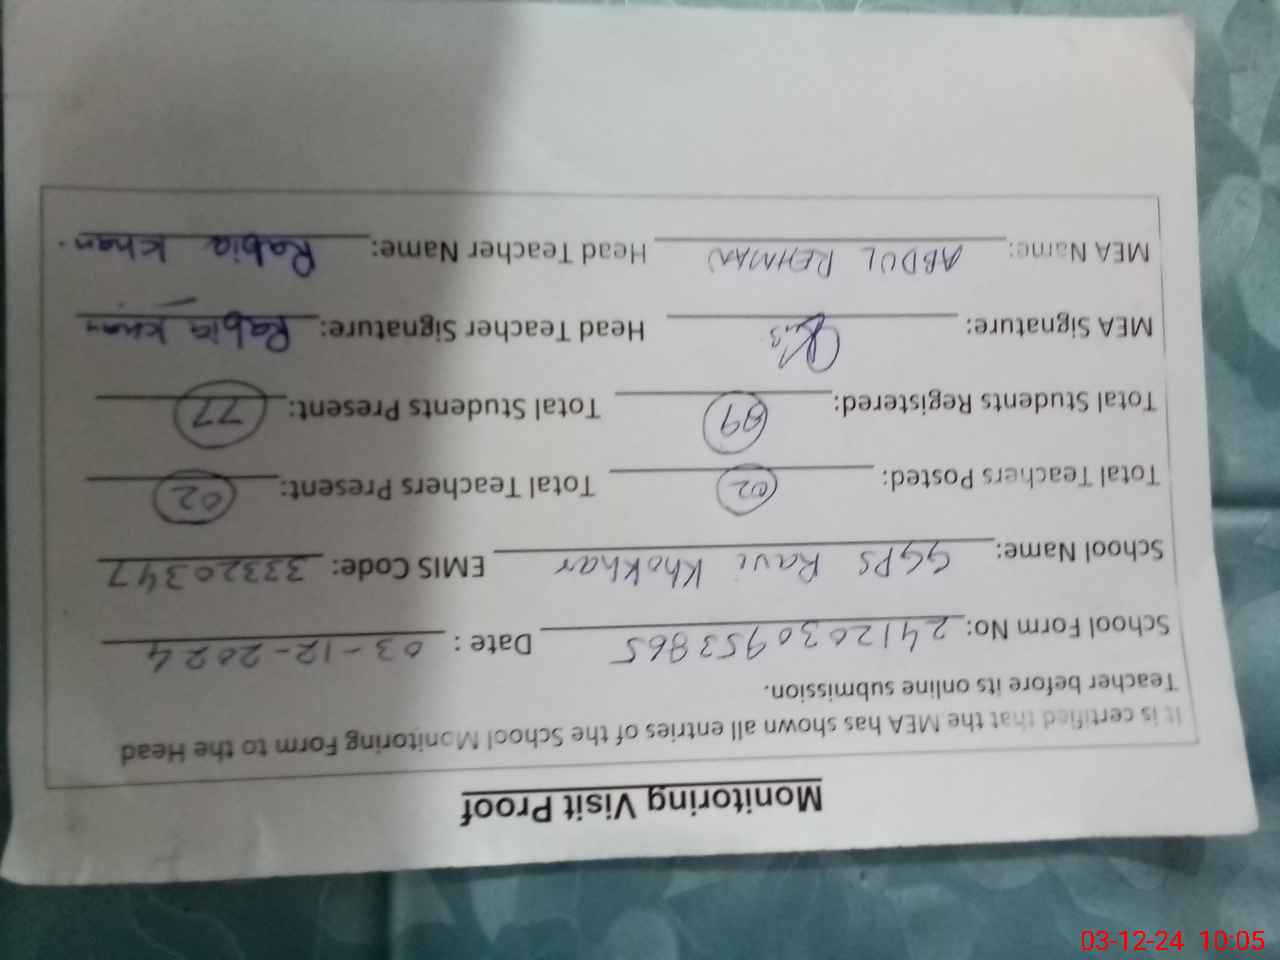 Monitoring Visit Proof
It is certified that the MEA has shown all entries of the School Monitoring Form to the Head
Teacher before its online submission.
School Form No: 2412030953865 Date : 03-12-2024
School Name: GGPS Ravi Khokhar EMIS Code: 33320347
Total Teachers Posted: 02 Total Teachers Present: 02
Total Students Registered: 89 Total Students Present: 77
MEA Signature: Head Teacher Signature: Rabia Khan
MEA Name: ABDUL REHMAN Head Teacher Name: Rabia Khan.
03-12-24 10:05